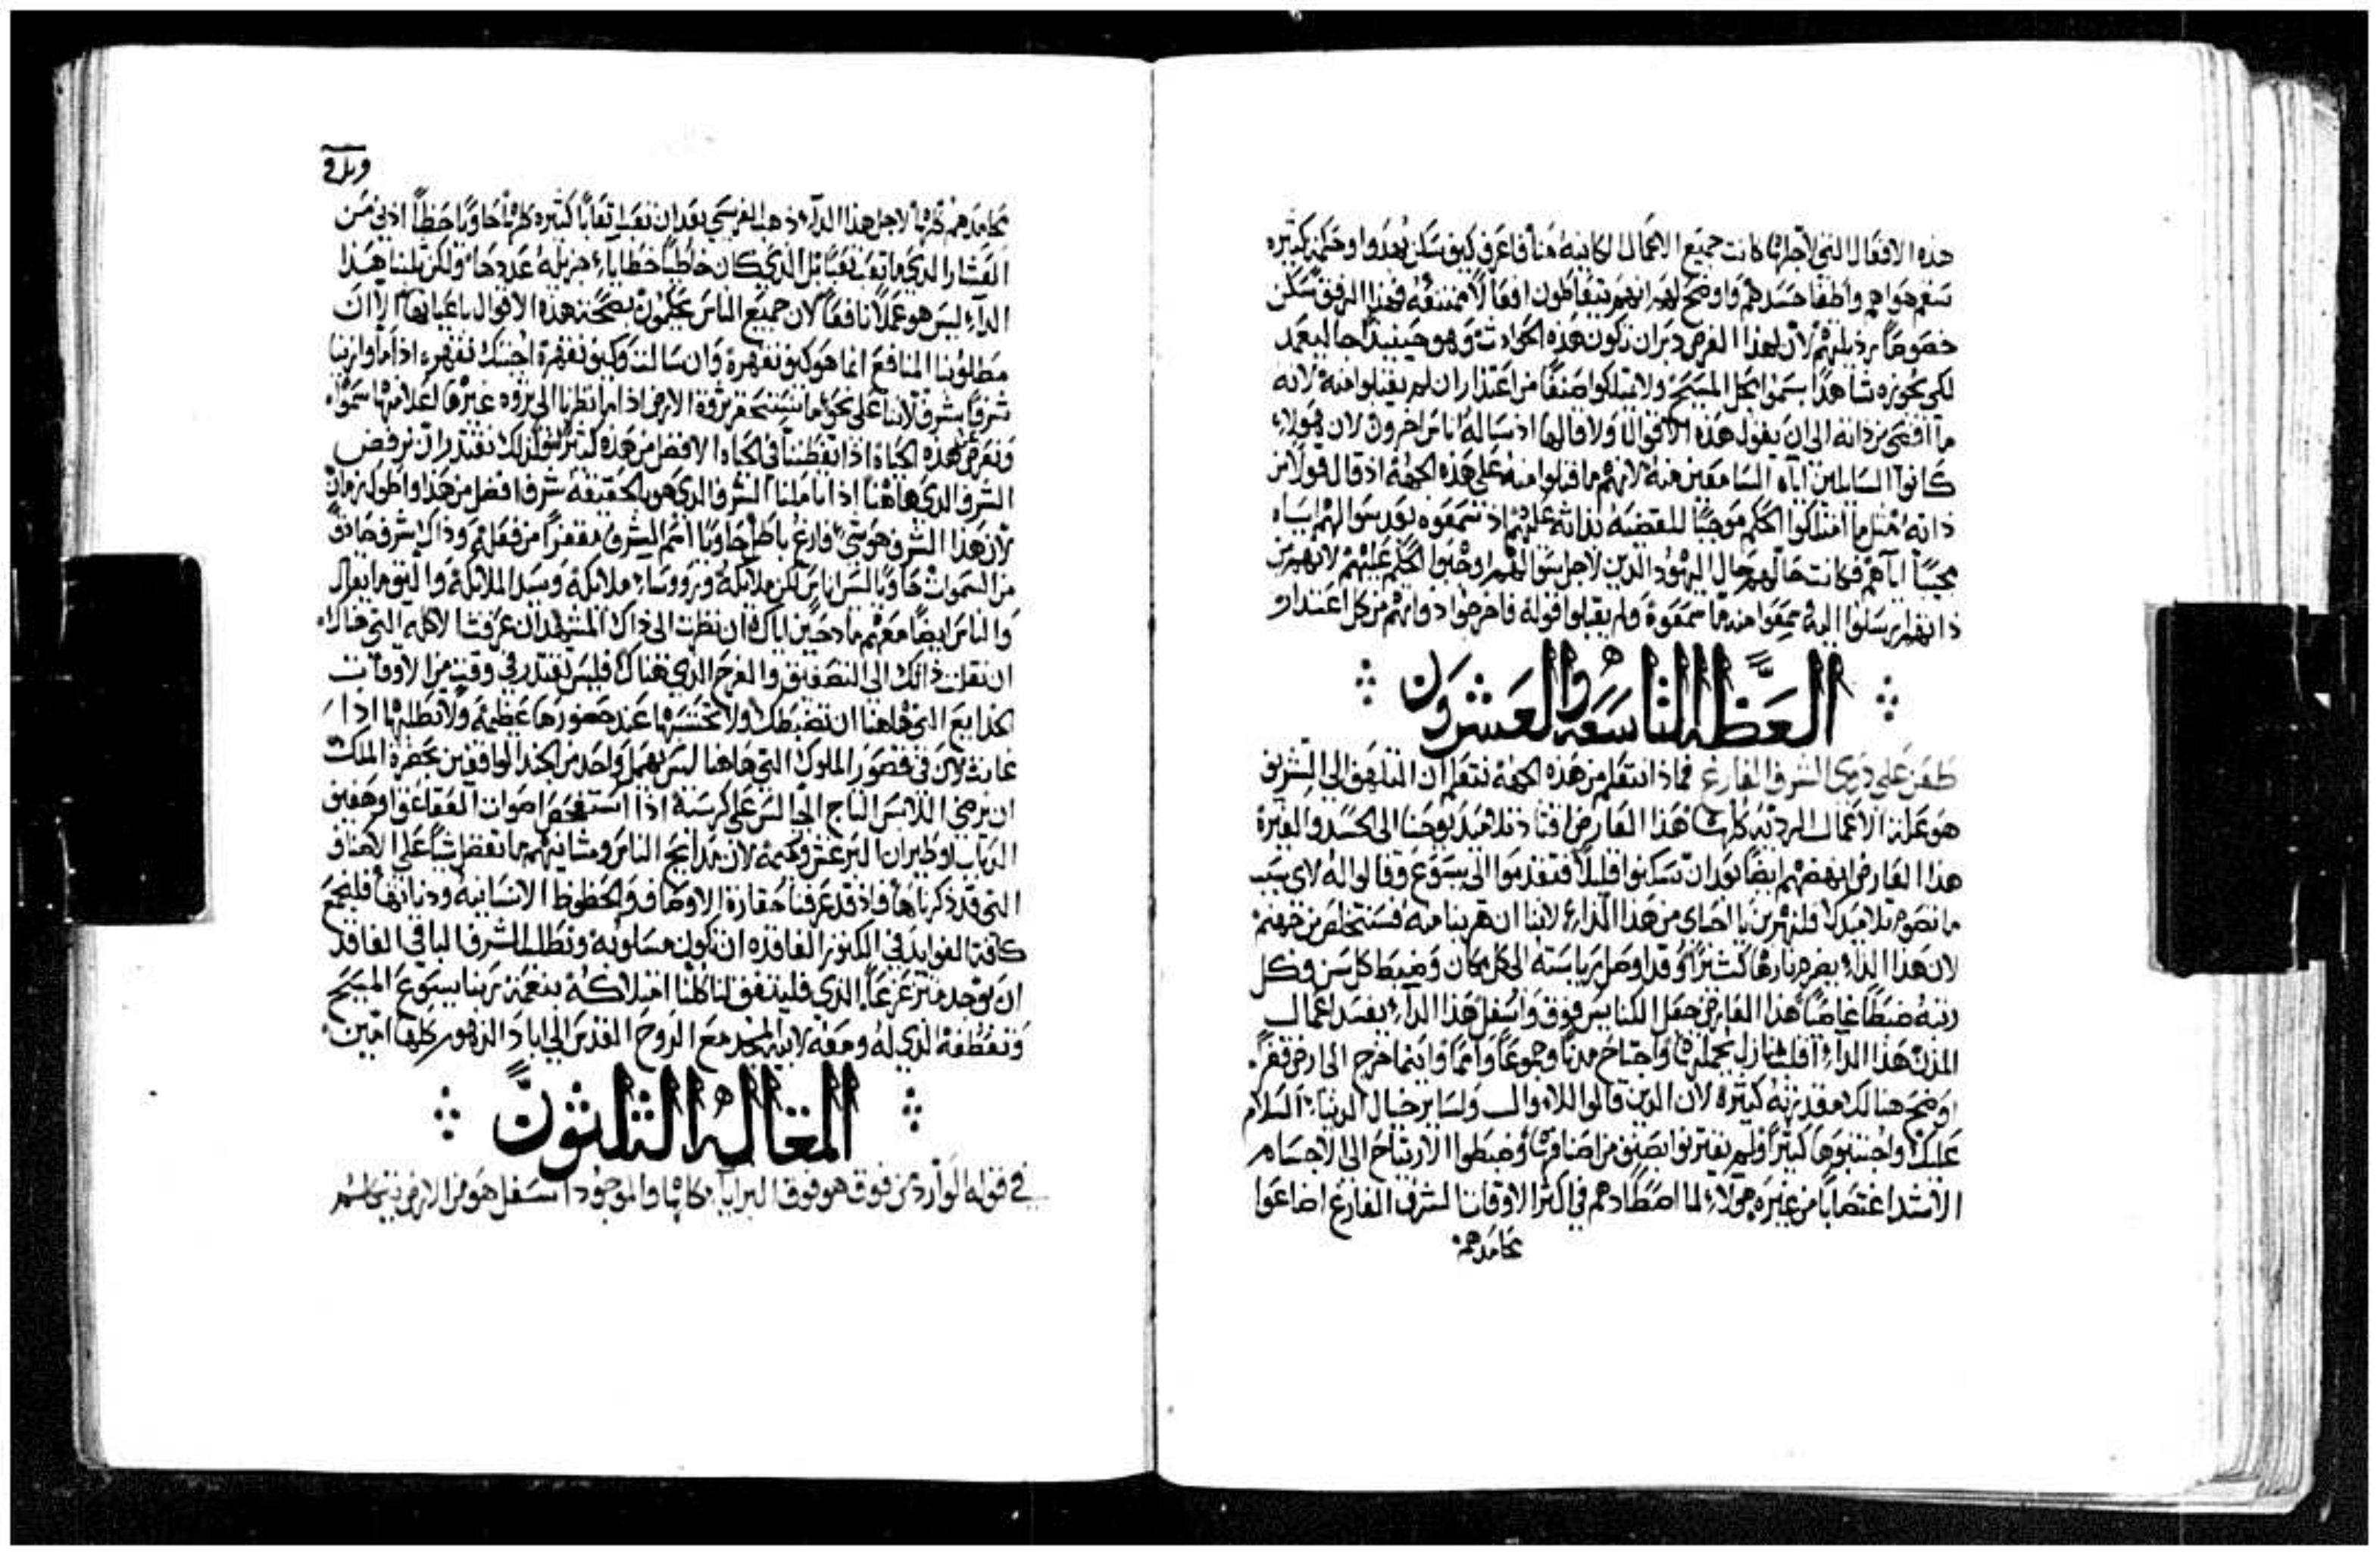 هذه الافعال التي لاجلها كانت جميع الاعمال الكاينة منا فاعرف كيف سكن بعدوا وحكمة كثيره
سقم هواهم واطفا حسدهم واوضح لهم انهم يتعاطون افعالا ممتنعة فهذا الرفق سكن
خصوصا رذيلتهم لان لهذا الغرض دبر ان تكون هذه الحوادث وهو حينيذ
لكي يحوزه شاهدا بسمو المسيح ولا يمتلكوا صنفا من اعتذار ان لم يقبلوا منه لانه
ما افضى بذاته الى ان يقول هذه الاقوال ولا قالها اذ ساله اناس اخرون لان هولاء
كانوا السايلين اياه السامعين منه لانهم ما قبلوا منه على هذه الجهة اذ قال قولا من
ذاته مثل ما امتلكوا الحكم موجبا للقضية بذاته عليهم اذ سمعوه بعد سوالهم اياه
مجيبا اياهم فكانت حالهم حال اليهود الذين لاجل سوالهم اوجبوا الحكم عليهم لانهم من
ذاتهم ارسلوا اليه سمعوا منه ما سمعوه ولم يقبلوا قوله فاخرجوا ذواتهم من كل اعتذار
العظه التاسعه والعشرون
طعن على ذوي الشرف الفارغ فماذا نتعلم من هذه الجهة نتعلم ان التلهف الى التشريف
هو علة الاعمال الرديه كلها هذا العارض اقتاد تلاميذ يوحنا الى الحسد والغيرة
هذا العارض انهضهم ايضا بعد ان سكنوا قليلا فتقدموا الى يسوع وقالوا له لاي سبب
ما تصوم تلاميذك فلنهربن يا احباي من هذا الداء لاننا ان هربنا منه فسنتخلص من جهنم
لان هذا الداء يضرم نارها كثيرا وقد اوصل رياسته الى كل مكان وضبط كل سن وكل
رتبة ضبطا غاصبا هذا العارض جعل الكنايس فوق واسفل هذا الداء يفسد اعمال
المدن هذا الداء اقلب منازل بجملتها واجتاح مدنا وجموعا وامما واينما خرج الى ارض قفر
اوضح هنالك مقدرته كثيرة لان الذين قالوا للاموال ولساير خيال الدنيا السلام
عليك واجتنبوها كثيرا ولم يقترنوا بصنف من اصنافها وضبطوا الارتياح الى الاجسام
الاشد اغتصابا من غيره هولاء لما اصطادهم في اكثر الاوقات الشرف الفارغ اضاعوا
محامدهم
محامدهم كلها لاجل هذا الداء ذهب الفريسي بعد ان تعب اتعابا كثيره كلها حاويا حظا ادنى من
العشار الذي ما تعب تعبا بل الذي كان خاطيا خطاياء جزيلة عددها ولكن ثلبنا هذا
الداء ليس هو عملا نافعا لان جميع الناس يحكمون بصحة هذه الاقوال باعيانها الا ان
مطلوبنا النافع انما هو كيف نقهره وان سالت وكيف نقهره اجبتك نقهره اذا ما وازينا
شرفا بشرف لاننا على نحو ما نستحقر ثروة الارض اذا ما نظرنا الى ثروه غيرها
ونعرض لهذه الحياه اذا تفطننا في الحياه الافضل من هذه كثيرا كذلك نقتدر ان نرفض
الشرف الذي هاهنا اذا تاملنا الشرف الذي هو بالحقيقة شرفا افضل من هذا واطول زمان
لان هذا الشرف هو شي فارغ باطل حاويا اسم الشرف مقفرا من فعل وذاك شرف صادق
من السموات حاويا ليس اناس لكن ملايكة وروساء ملايكة وسيد الملايكة واليق ما يقال
والناس ايضا معهم مادحين اياك فان نظرت الى ذاك المشهد ان عرفت الاكلة التي هناك
ان نقلت ذاتك الى التصفيق والفرح الذي هناك فليس تقتدر في وقت من الاوقات
الخدايع التي هاهنا ان تضبطك ولا تحتسبها عند حضورها عظيمة ولا تطلبها اذا
غابت لان في قصور الملوك التي هاهنا ليس يهمل واحد من الجند الواقفين بحضرة الملك
ان يرضي اللابس التاج الجالس على كرسيه اذا استفحص اصوات العقاعق او هفيف
الذباب او طيران البرغش لان مدايح الناس ومشانيهم ما تفضل شيا على الاصناف
التي قد ذكرناها فاذ قد عرفنا حقارة الاوصاف والحظوظ الانسانيه ودناتها فلنجمع
كافة الفوايد في الكنوز الفاقده ان تكون مسلوبة ونطلب الشرف الباقي الفاقد
ان يوجد متزعزعا الذي فليتفق لنا كلنا امتلاكه بنعمة ربنا يسوع المسيح
وتعطفه الذي له ومعه لابيه المجد مع الروح القدس الى اباد الدهور كلها امين
المقاله الثلثون
في قوله الوارد من فوق هو فوق البرايا كلها والموجود اسفل هو من الارض يتكلم